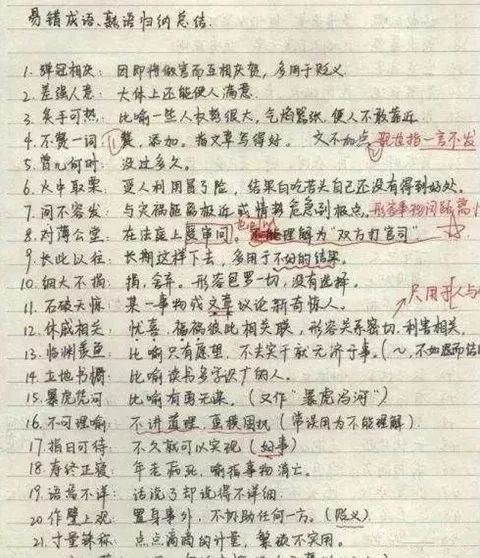 易错成语、熟语归纳总结.
1. 弹冠相庆: 因即将做官而互相庆贺, 多用于贬义
2. 差强人意: 大体上还能使人满意.
3. 炙手可热: 比喻一些人权势很大, 气焰嚣张, 使人不敢靠近
4. 不赞一词: 赞, 添加. 指文章写得好. 文不加点 即准指一言不发
5. 曾几何时: 没过多久.
6. 火中取栗: 受人利用冒了险, 结果白吃苦头自己还没有得到好处.
7. 间不容发: 与灾祸距离极近或情势危急到极点. 形容事物间距离小
8. 对薄公堂: 在法庭上受审问. 也可以理解为“双方打官司”
9. 长此以往: 长期这样下去, 多用于不好的结果.
10. 细大不捐: 捐, 舍弃. 形容包罗一切, 没有选择.
11. 石破天惊: 某一事物或文章议论新奇惊人.
只用于人与
12. 休戚相关: 忧喜、福祸彼此相关联, 形容关系密切, 利害相关.
13. 临渊羡鱼: 比喻只有愿望, 不去实干就无济于事. (~, 不如退而结
14. 立地书橱: 比喻读书多学识广的人.
15. 暴虎凭河: 比喻有勇无谋. (又作“暴虎冯河”)
16. 不可理喻: 不讲道理, 蛮横固执 (常误用为不能理解)
17. 指日可待: 不久就可以实现 (好事)
18. 寿终正寝: 年老病死, 喻指事物消亡.
19. 语焉不详: 话说了却说得不详细.
20. 作壁上观: 置身事外, 不协助任何一方. (贬义)
21. 寸量铢称: 点点滴滴的计量, 繁琐不实用.